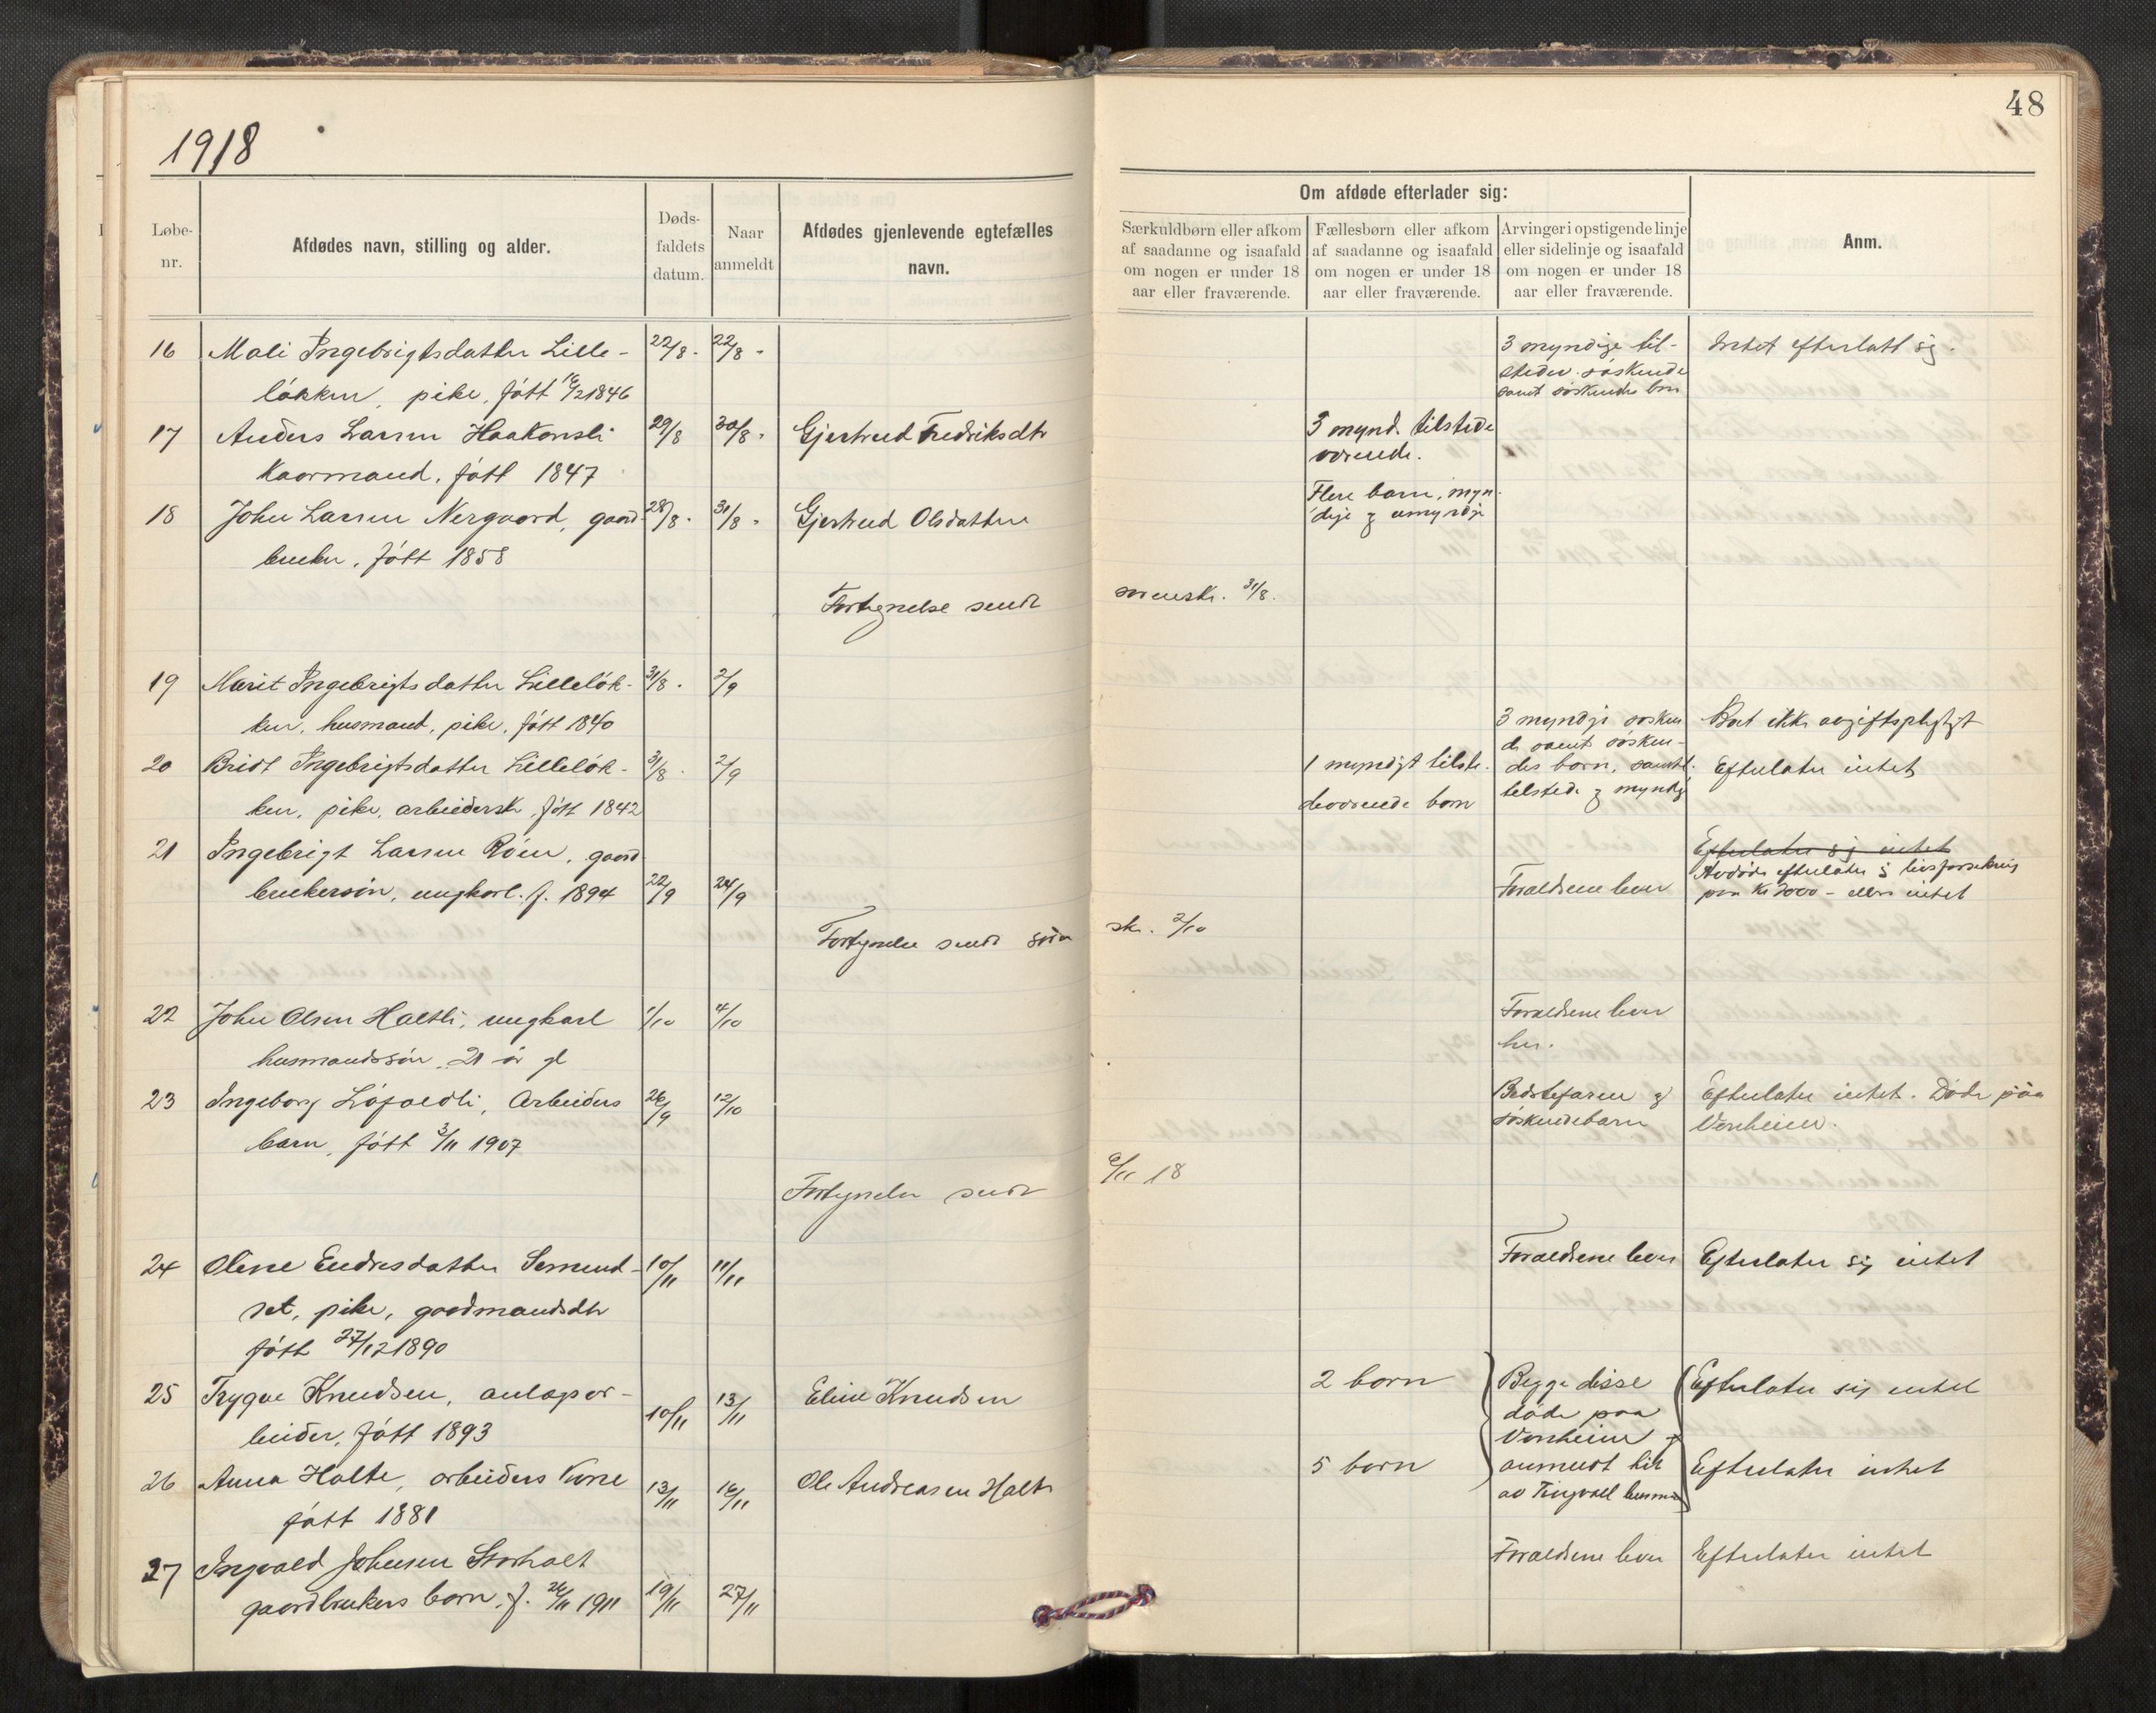 48
1918
Løbe-
nr.
Afdødes navn, stilling og alder.
Døds-
faldets
datum.
Naar
anmeldt
Afdødes gjenlevende egtefælles
navn.
Om afdøde efterlader sig:
Særkuldbørn eller afkom
af saadanne og isaafald
om nogen er under 18
aar eller fraværende.
Fællesbørn eller afkom
af saadanne og isaafald
om nogen er under 18
aar eller fraværende.
Arvinger i opstigende linje
eller sidelinje og isaafald
om nogen er under 18
aar eller fraværende.
Anm.
16 Mali Ingebrigtsdatter Lille- 22/8. 22/8.
løkken, pike, født 16/2 1846
3 myndige til-
steder. søskende
samt søskendes børn
Intet efterlatt sig.
17 Anders Larsen Haakonsli 29/8 30/8. Gjertrud Fredriksdtr
Kaarmand, født 1847
3 mynd. tilstede
værende.
18 John Larsen Nergaard, gaard- 28/8. 31/8. Gjertrud Olsdatter
bruker, født 1858
Flere barn, myn-
dige og umyndige
Fortegnelse sendt sorenskr. 31/8.
19 Marit Ingebrigtsdatter Lilleløk- 31/8. 2/9
ken, husmand, pike, født 1840
3 myndige søsken
de samt søsken-
des børn, samtl.
tilstede og myndig
Boet ikke avgiftspligtigt
20 Brit Ingebrigtsdatter Lilleløk- 31/8. 2/9
ken, pike, arbeidersk, født 1842
1 myndigt tilste-
deværende barn
Efterlater intet
21 Ingebrigt Larsen Røen, gaard-
brukersøn, ungkarl. f. 1894 22/9 24/9
Forældrene lever
Efterlater sig intet
Avdøde efterlater s livsforsikring
paa Kr 2000 - ellers intet
Fortegnelse sendt soren skr. 2/10
22 John Olsen Haltli, ungkarl 1/10 4/10
husmandssøn, 21 år gl
Forældrene lever
her.
23 Ingeborg Løfaldli, Arbeiders 26/9 12/10
barn, født 3/11 1907
Bedstefaren og
søskendebarn
Efterlater intet. Døde paa
Vonheim.
Fortegnelse sendt 9/11 18
24 Oline Endresdatter Semund- 10/11 11/11
set, pike, gaardmandsdtr
født 27/12 1890
Forældrene lever
Efterlater sig intet
25 Trygve Knudsen, anlægsar-
beider, født 1893 10/11 13/11 Eline Knudsen
2 børn
Begge disse
døde paa
Vonheim og
anmeldt hit
av Tingvoll lensmd
Efterlater sig intet
26 Anna Holte, arbeiders kone 13/11 16/11 Ole Andreasen Holte
født 1881
5 børn
Efterlater intet
27 Ingvald Johnsen Storholt
gaardbrukers barn, f. 26/11 1911 19/11 27/11
Forældrene lever
Efterlater intet